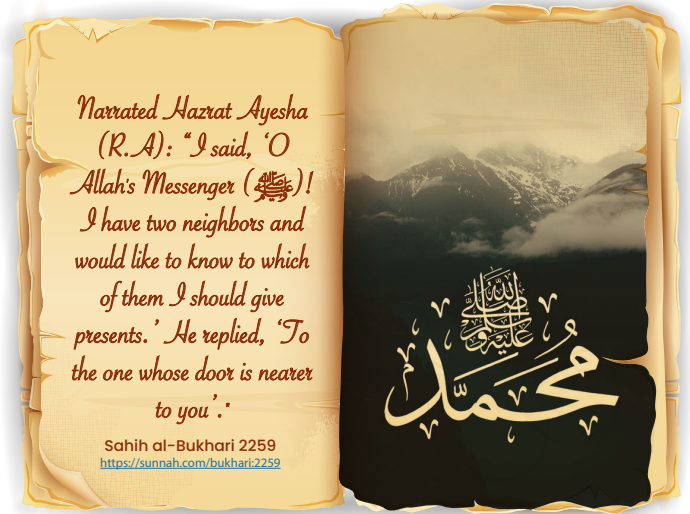 Narrated Hazrat Ayesha
(R.A): “I said, ‘O
Allah's Messenger (ﷺ)!
I have two neighbors and
would like to know to which
of them I should give
presents.’ He replied, ‘To
the one whose door is nearer
to you’."
Sahih al-Bukhari 2259
https://sunnah.com/bukhari:2259
صلى الله عليه وسلم
مُحَمَّد